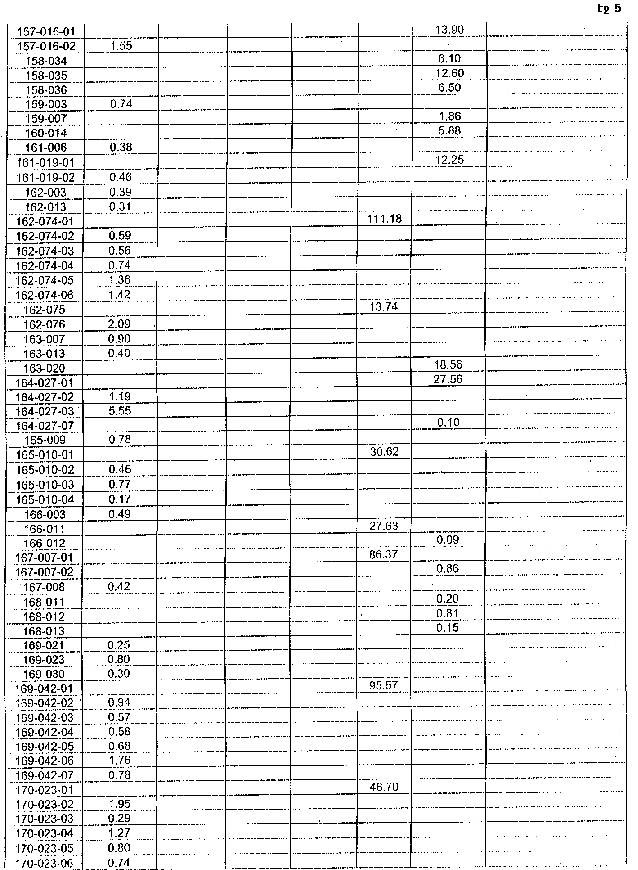 tg 5
157-016-01 13.90
157-016-02 1.65
158-034 8.10
158-035 12.60
158-036 6.50
159-003 0.74
159-007 1.86
160-014 5.88
161-006 0.38
161-019-01 12.25
161-019-02 0.46
162-003 0.39
162-013 0.31
162-074-01 111.18
162-074-02 0.59
162-074-03 0.56
162-074-04 0.74
162-074-05 1.36
162-074-06 1.42
162-075 13.74
162-076 2.09
163-007 0.90
163-013 0.40
163-020 18.56
164-027-01 27.56
164-027-02 1.19
164-027-03 5.55
164-027-07 0.10
165-009 0.78
165-010-01 30.62
165-010-02 0.46
165-010-03 0.77
165-010-04 0.17
166-003 0.49
166-011 27.63
166 012 0.09
167-007-01 86.37
167-007-02 0.86
167-008 0.42
168 011 0.20
168-012 0.81
168-013 0.15
169-021 0.25
169-023 0.80
169 030 0.30
169-042-01 95.57
169-042-02 0.94
169-042-03 0.57
169-042-04 0.56
169-042-05 0.68
169-042-06 1.76
169-042-07 0.78
170-023-01 46.70
170-023-02 1.95
170-023-03 0.29
170-023-04 1.27
170-023-05 0.80
170-023-06 0.74